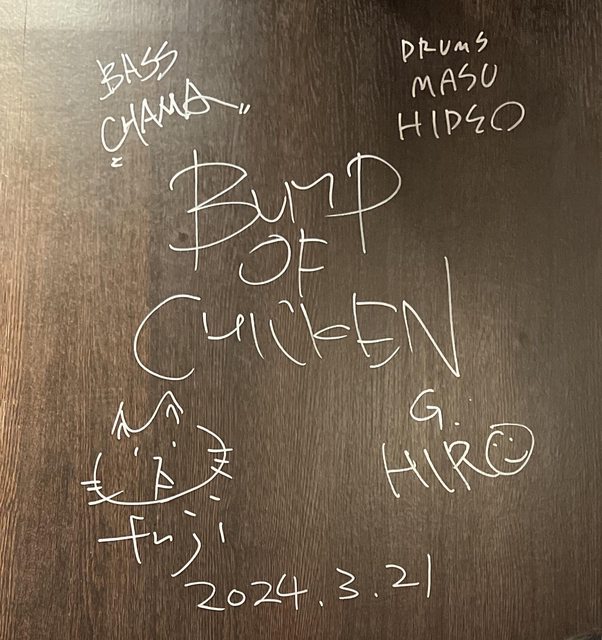 BASS
CHAMA
DRUMS
MASU
HIDEO
BUMP
OF
CHICKEN
G.
HIRO
fuji
2024.3.21